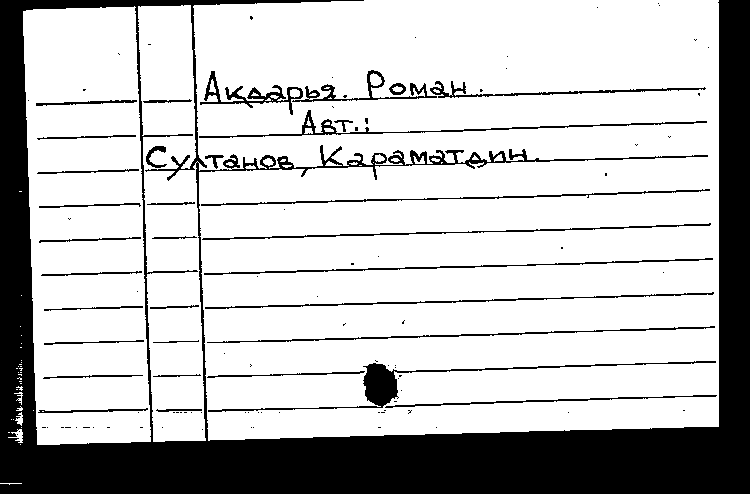 Ақдарья. Роман.
Авт.:
Султанов, Караматдин.